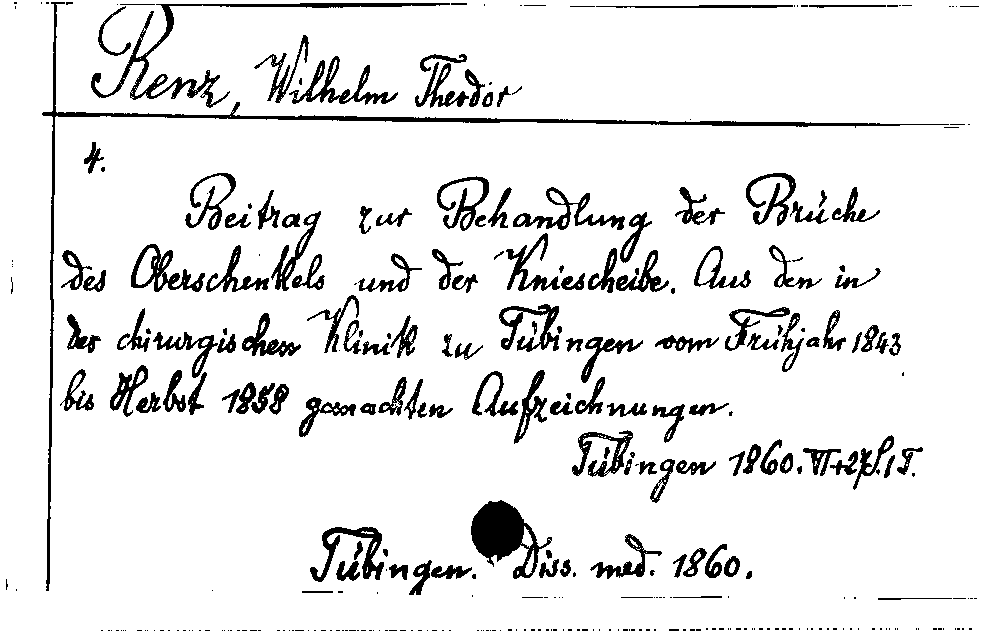 Renz, Wilhelm Theodor
4.
Beitrag zur Behandlung der Brüche
des Oberschenkels und der Kniescheibe. Aus den in
der chirurgischen Klinik zu Tübingen vom Frühjahr 1843
bis Herbst 1858 gemachten Aufzeichnungen.
Tübingen 1860. VI+27S. 1 T.
Tübingen. Diss. med. 1860.